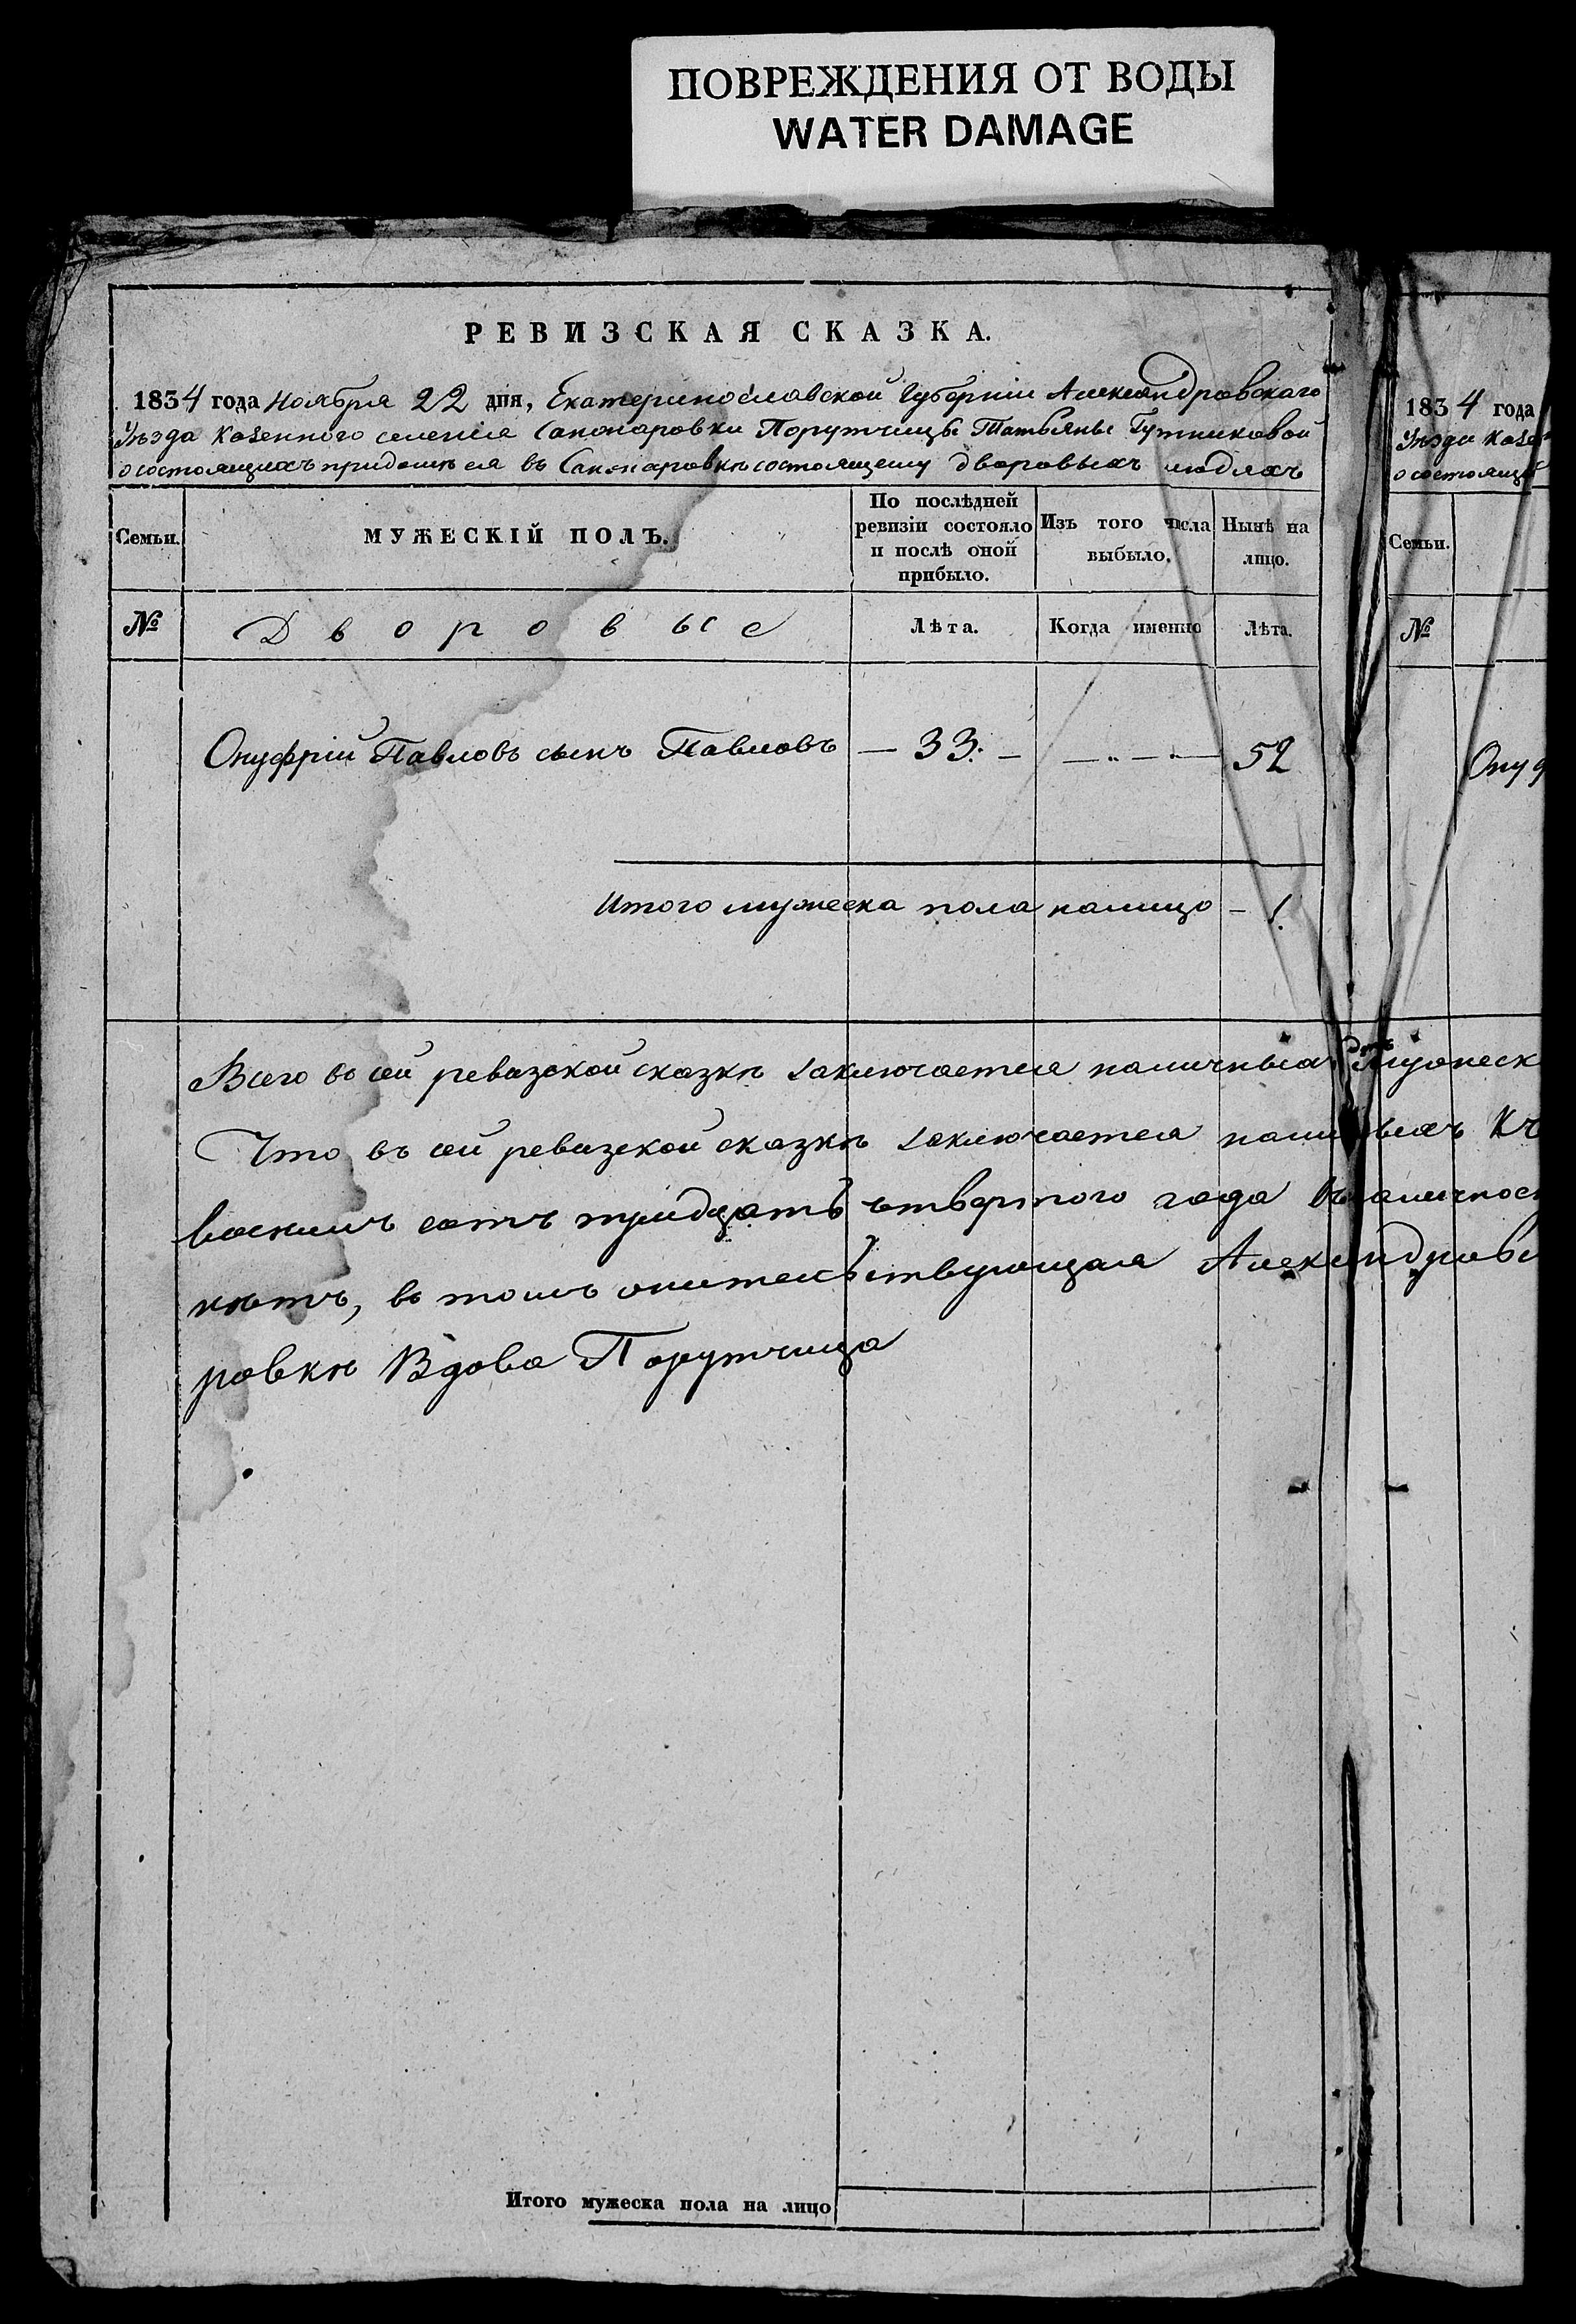 ПОВРЕЖДЕНИЯ ОТ ВОДЫ
WATER DAMAGE
РЕВИЗСКАЯ СКАЗКА.
1834 года Ноября 22 дня, Екатеринославской Губернiи Александровскаго
Уѣзда Казенного селенiя Порутчицы Татьяны Гутниковой
о состоящихъ придомѣ ея въ состоящему дворовыхъ людяхъ
Семьи.
МУЖЕСКІЙ ПОЛЪ.
По послѣдней ревизіи состояло и послѣ оной прибыло.
Изъ того числа выбыло.
Нынѣ на лицо.
№
Дворовые
Лѣта.
Когда именно
Лѣта.
Онуфрiй Павловъ сынъ Павловъ — 33. — — „ — „ — 52
Итого мужеска пола налицо — 1.
Всего въ сей ревизской сказкѣ заключается наличныхъ мужеск
Что въ сей ревизской сказкѣ заключается
восемь сотъ тридцать четвертого года
нѣтъ, въ томъ Александровс
ровки Вдова Порутчица
Итого мужеска пола на лицо
1834 года
Уѣзда Казен
о состоящ
Семьи.
№
Онуф